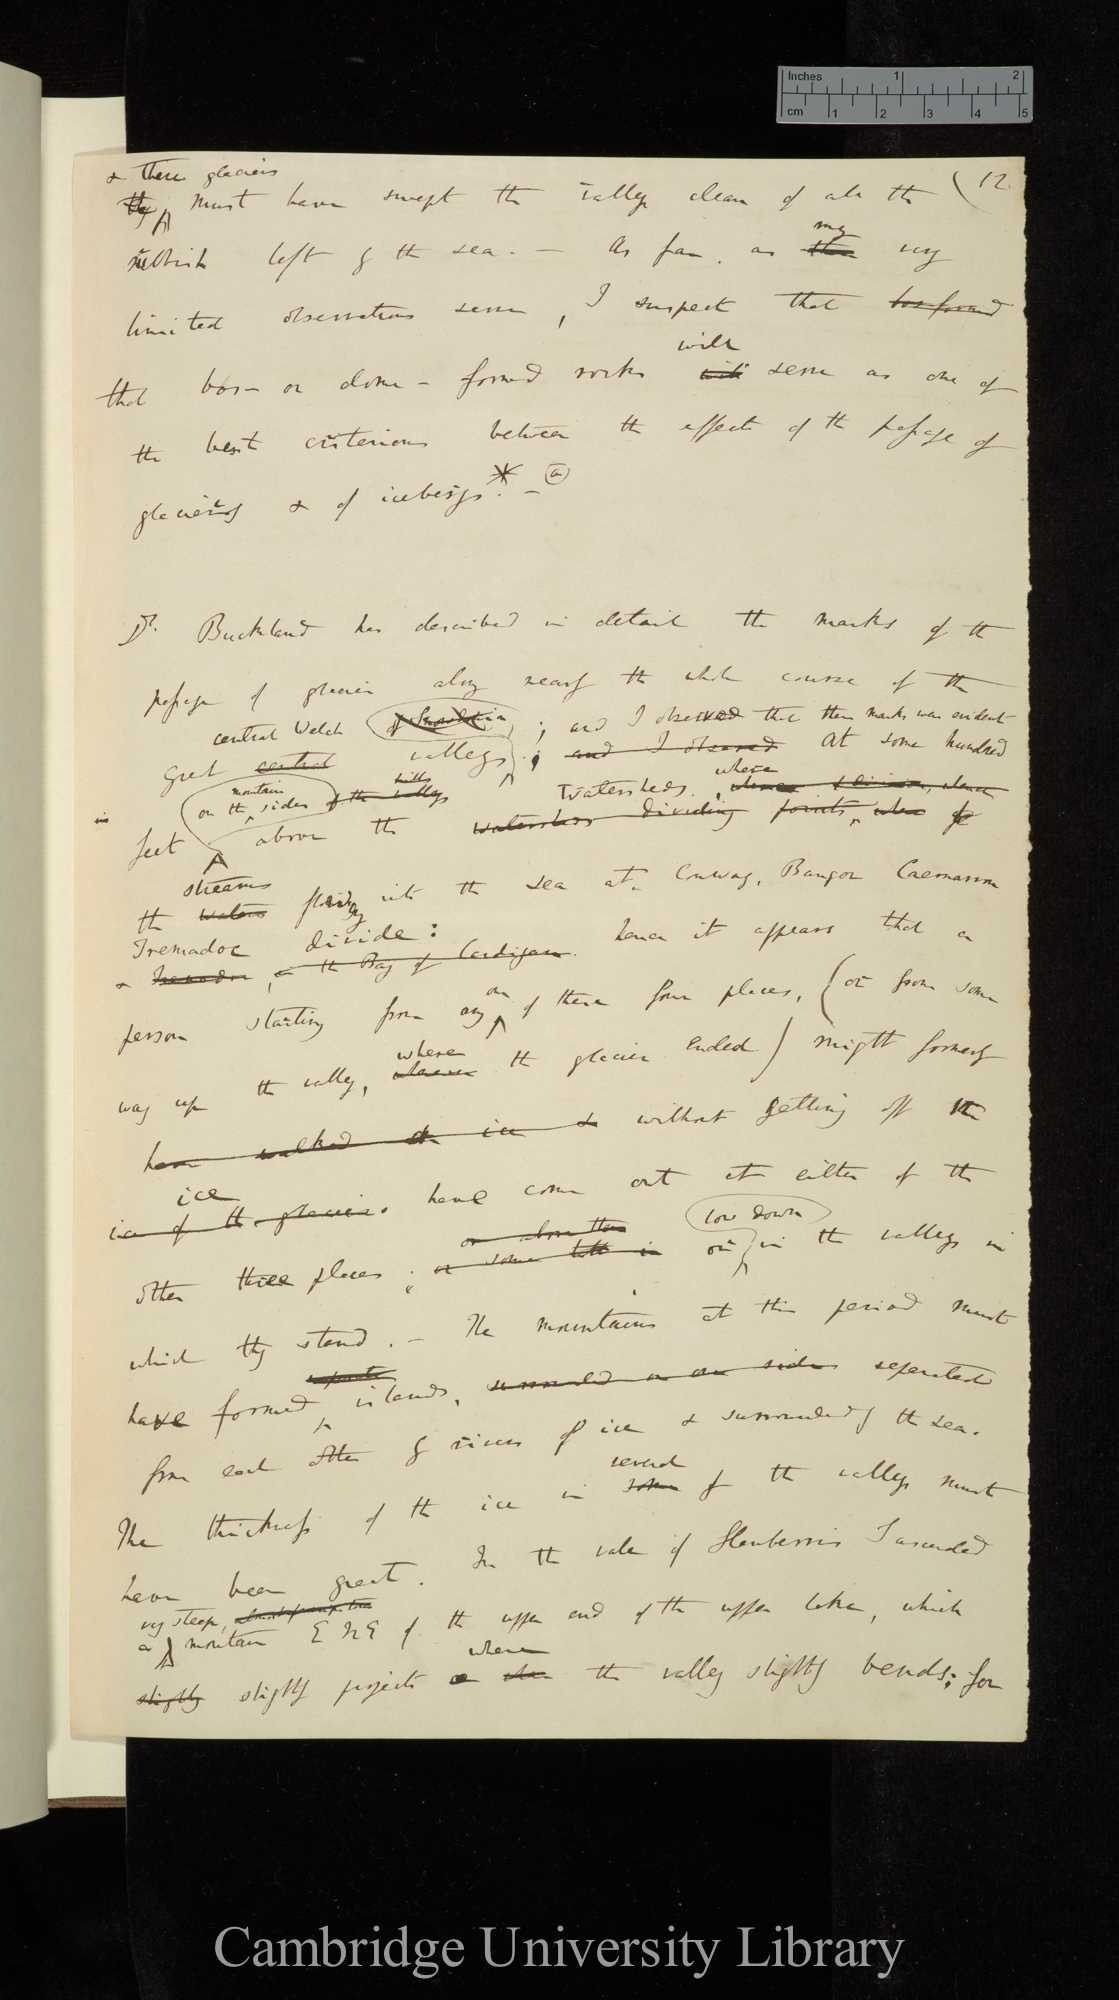 Inches 1 2
cm 1 2 3 4 5
(12
& these glaciers
they must have swept the valley clean of all the
my
rubbish left by the sea. — As far, as these very
limited observations serve, I suspect that bos-formed
will
that boss- or dome- formed rocks will serve as one of
the best criterions between the effects of the passage of
glaciers & of icebergs*. — (a)
Dr. Buckland has described in detail the marks of the
passage of glaciers along nearly the whole course of the
central Welch of Snowdonia; and I observed that these marks was evident
great central valleys; and I observed at some hundred
on the mountain sides of the valleys hills watersheds, where
feet above the watersheds dividing points, where
streams
the waters flowing into the sea at Conway, Bangor Caernarvon
Tremadoc divide:
& Tremadoc, & the Bay of Cardigan. hence it appears that a
one
person starting from any of these four places, (or from some
where
way up the valley, wherever the glacier ended) might formerly
have walked on ice & without getting off the
ice
ice of the glaciers. have come out at either of the
or above them low down
other three places; or some little in or in the valleys in
which they stand. — The mountains at this period must
separate
have formed islands, surrounded on one side separated
from each other by rivers of ice & surrounded by the sea.
several
The thickness of the ice in some of the valleys must
have been great. In the vale of Llanberris I ascended
very steep,
a mountain E N E of the upper end of the upper lake, which
where
slightly slightly projects the valley slightly bends; for
Cambridge University Library